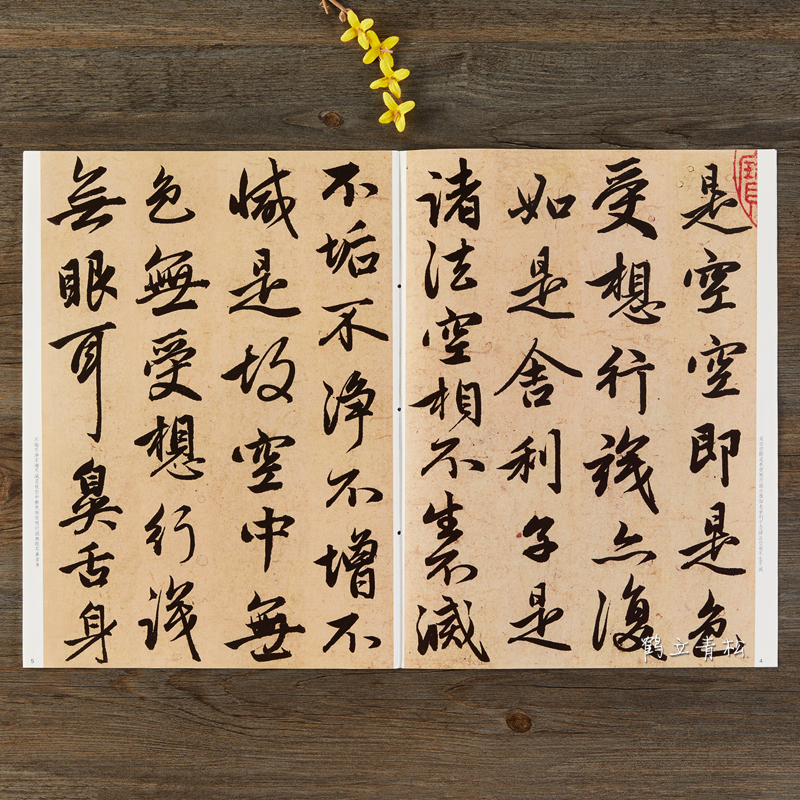 是空空即是色
受想行識亦復
如是舍利子是
諸法空相不生不滅
不垢不淨不增不
減是故空中無
色無受想行識
無眼耳鼻舌身
4
5
鹤立青松